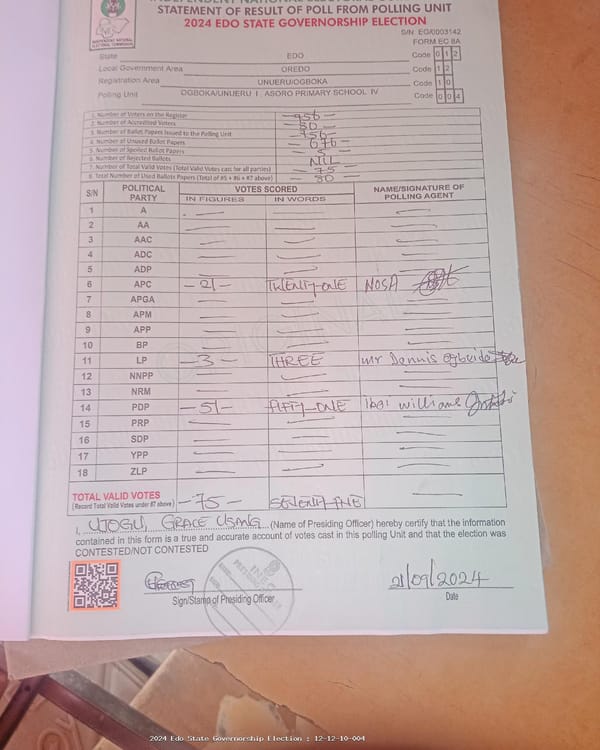 INDEPENDENT NATIONAL ELECTORAL COMMISSION
STATEMENT OF RESULT OF POLL FROM POLLING UNIT
2024 EDO STATE GOVERNORSHIP ELECTION
S/N EG/0003142
FORM EC 8A
State EDO Code 0 1 2
Local Government Area OREDO Code 1 2
Registration Area UNUERU/OGBOKA Code 1 0
Polling Unit OGBOKA/UNUERU I , ASORO PRIMARY SCHOOL IV Code 0 0 4
1. Number of Voters on the Register -956-
2. Number of Accredited Voters -80-
3. Number of Ballot Papers Issued to the Polling Unit -956-
4. Number of Unused Ballot Papers -876-
5. Number of Spoiled Ballot Papers -5-
6. Number of Rejected Ballots NIL
7. Number of Total Valid Votes (Total Valid Votes cast for all parties) -75-
8. Total Number of Used Ballots Papers (Total of #5 + #6 + #7 above) -80-
S/N POLITICAL PARTY VOTES SCORED NAME/SIGNATURE OF POLLING AGENT
IN FIGURES IN WORDS
1 A
2 AA
3 AAC
4 ADC
5 ADP
6 APC -21- TWENTY-ONE NOSA
7 APGA
8 APM
9 APP
10 BP
11 LP -3- THREE Mr Dennis Ogbeide
12 NNPP
13 NRM
14 PDP -51- FIFTY-ONE williams
15 PRP
16 SDP
17 YPP
18 ZLP
TOTAL VALID VOTES -75-
(Record Total Valid Votes under #7 above)
I, UJOGU, GRACE USANG (Name of Presiding Officer) hereby certify that the information
contained in this form is a true and accurate account of votes cast in this polling Unit and that the election was
CONTESTED/NOT CONTESTED
21/09/2024
Sign/Stamp of Presiding Officer Date
2024 Edo State Governorship Election : 12-12-10-004